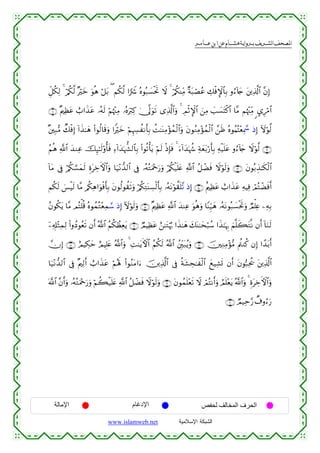 المصحف الشريف برواية هشام عن ابن عامر
إِنَّ ٱلَّذِينَ جَآءُو بِٱلْإِفْكِ عُصْبَةٌ مِّنكُمْ لَا تَحْسَبُوهُ شَرًّا لَّكُم بَلْ هُوَ خَيْرٌ لَّكُمْ لِكُلِّ
ٱمْرِئٍ مِّنْهُم مَّا ٱكْتَسَبَ مِنَ ٱلْإِثْمِ وَٱلَّذِى تَوَلَّىٰ كِبْرَهُۥ مِنْهُمْ لَهُۥ عَذَابٌ عَظِيمٌ
لَّوْلَآ إِذ سَّمِعْتُمُوهُ ظَنَّ ٱلْمُؤْمِنُونَ وَٱلْمُؤْمِنَٰتُ بِأَنفُسِهِمْ خَيْرًا وَقَالُوا۟ هَٰذَآ إِفْكٌ مُّبِينٌ
لَّوْلَا جَآءُو عَلَيْهِ بِأَرْبَعَةِ شُهَدَآءَ فَإِذْ لَمْ يَأْتُوا۟ بِٱلشُّهَدَآءِ فَأُو۟لَٰٓئِكَ عِندَ ٱللَّهِ هُمُ
ٱلْكَٰذِبُونَ وَلَوْلَا فَضْلُ ٱللَّهِ عَلَيْكُمْ وَرَحْمَتُهُۥ فِى ٱلدُّنْيَا وَٱلْآخِرَةِ لَمَسَّكُمْ فِى مَآ
أَفَضْتُمْ فِيهِ عَذَابٌ عَظِيمٌ إِذ تَّلَقَّوْنَهُۥ بِأَلْسِنَتِكُمْ وَتَقُولُونَ بِأَفْوَاهِكُم مَّا لَيْسَ لَكُم
بِهِۦ عِلْمٌ وَتَحْسَبُونَهُۥ هَيِّنًا وَهُوَ عِندَ ٱللَّهِ عَظِيمٌ وَلَوْلَآ إِذ سَّمِعْتُمُوهُ قُلْتُم مَّا يَكُونُ
لَنَآ أَن نَّتَكَلَّمَ بِهَٰذَا سُبْحَٰنَكَ هَٰذَا بُهْتَٰنٌ عَظِيمٌ يَعِظُكُمُ ٱللَّهُ أَن تَعُودُوا۟ لِمِثْلِهِۦٓ
أَبَدًا إِن كُنتُم مُّؤْمِنِينَ وَيُبَيِّنُ ٱللَّهُ لَكُمُ ٱلْآيَٰتِ وَٱللَّهُ عَلِيمٌ حَكِيمٌ إِنَّ
ٱلَّذِينَ يُحِبُّونَ أَن تَشِيعَ ٱلْفَٰحِشَةُ فِى ٱلَّذِينَ ءَامَنُوا۟ لَهُمْ عَذَابٌ أَلِيمٌ فِى ٱلدُّنْيَا
وَٱلْآخِرَةِ وَٱللَّهُ يَعْلَمُ وَأَنتُمْ لَا تَعْلَمُونَ وَلَوْلَا فَضْلُ ٱللَّهِ عَلَيْكُمْ وَرَحْمَتُهُۥ وَأَنَّ ٱللَّهَ
رَءُوفٌ رَّحِيمٌ
الحرف المخالف لحفص الإدغام الإمالة
الشبكة الإسلامية www.islamweb.net